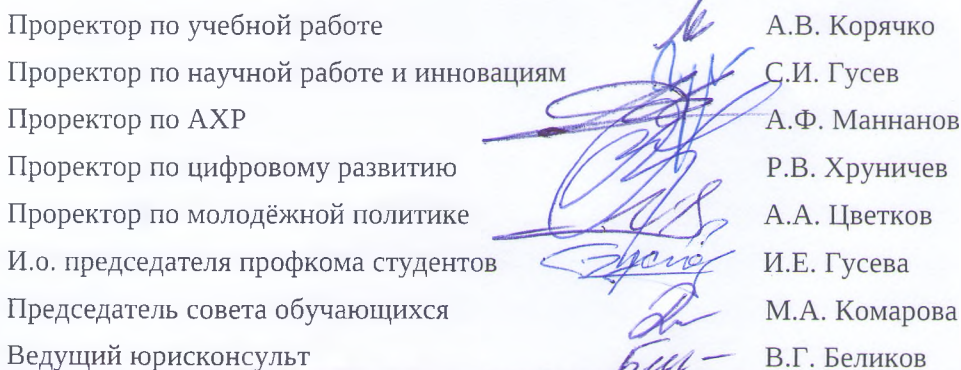 Проректор по учебной работе А.В. Корячко
Проректор по научной работе и инновациям С.И. Гусев
Проректор по АХР А.Ф. Маннанов
Проректор по цифровому развитию Р.В. Хруничев
Проректор по молодёжной политике А.А. Цветков
И.о. председателя профкома студентов И.Е. Гусева
Председатель совета обучающихся М.А. Комарова
Ведущий юрисконсульт В.Г. Беликов